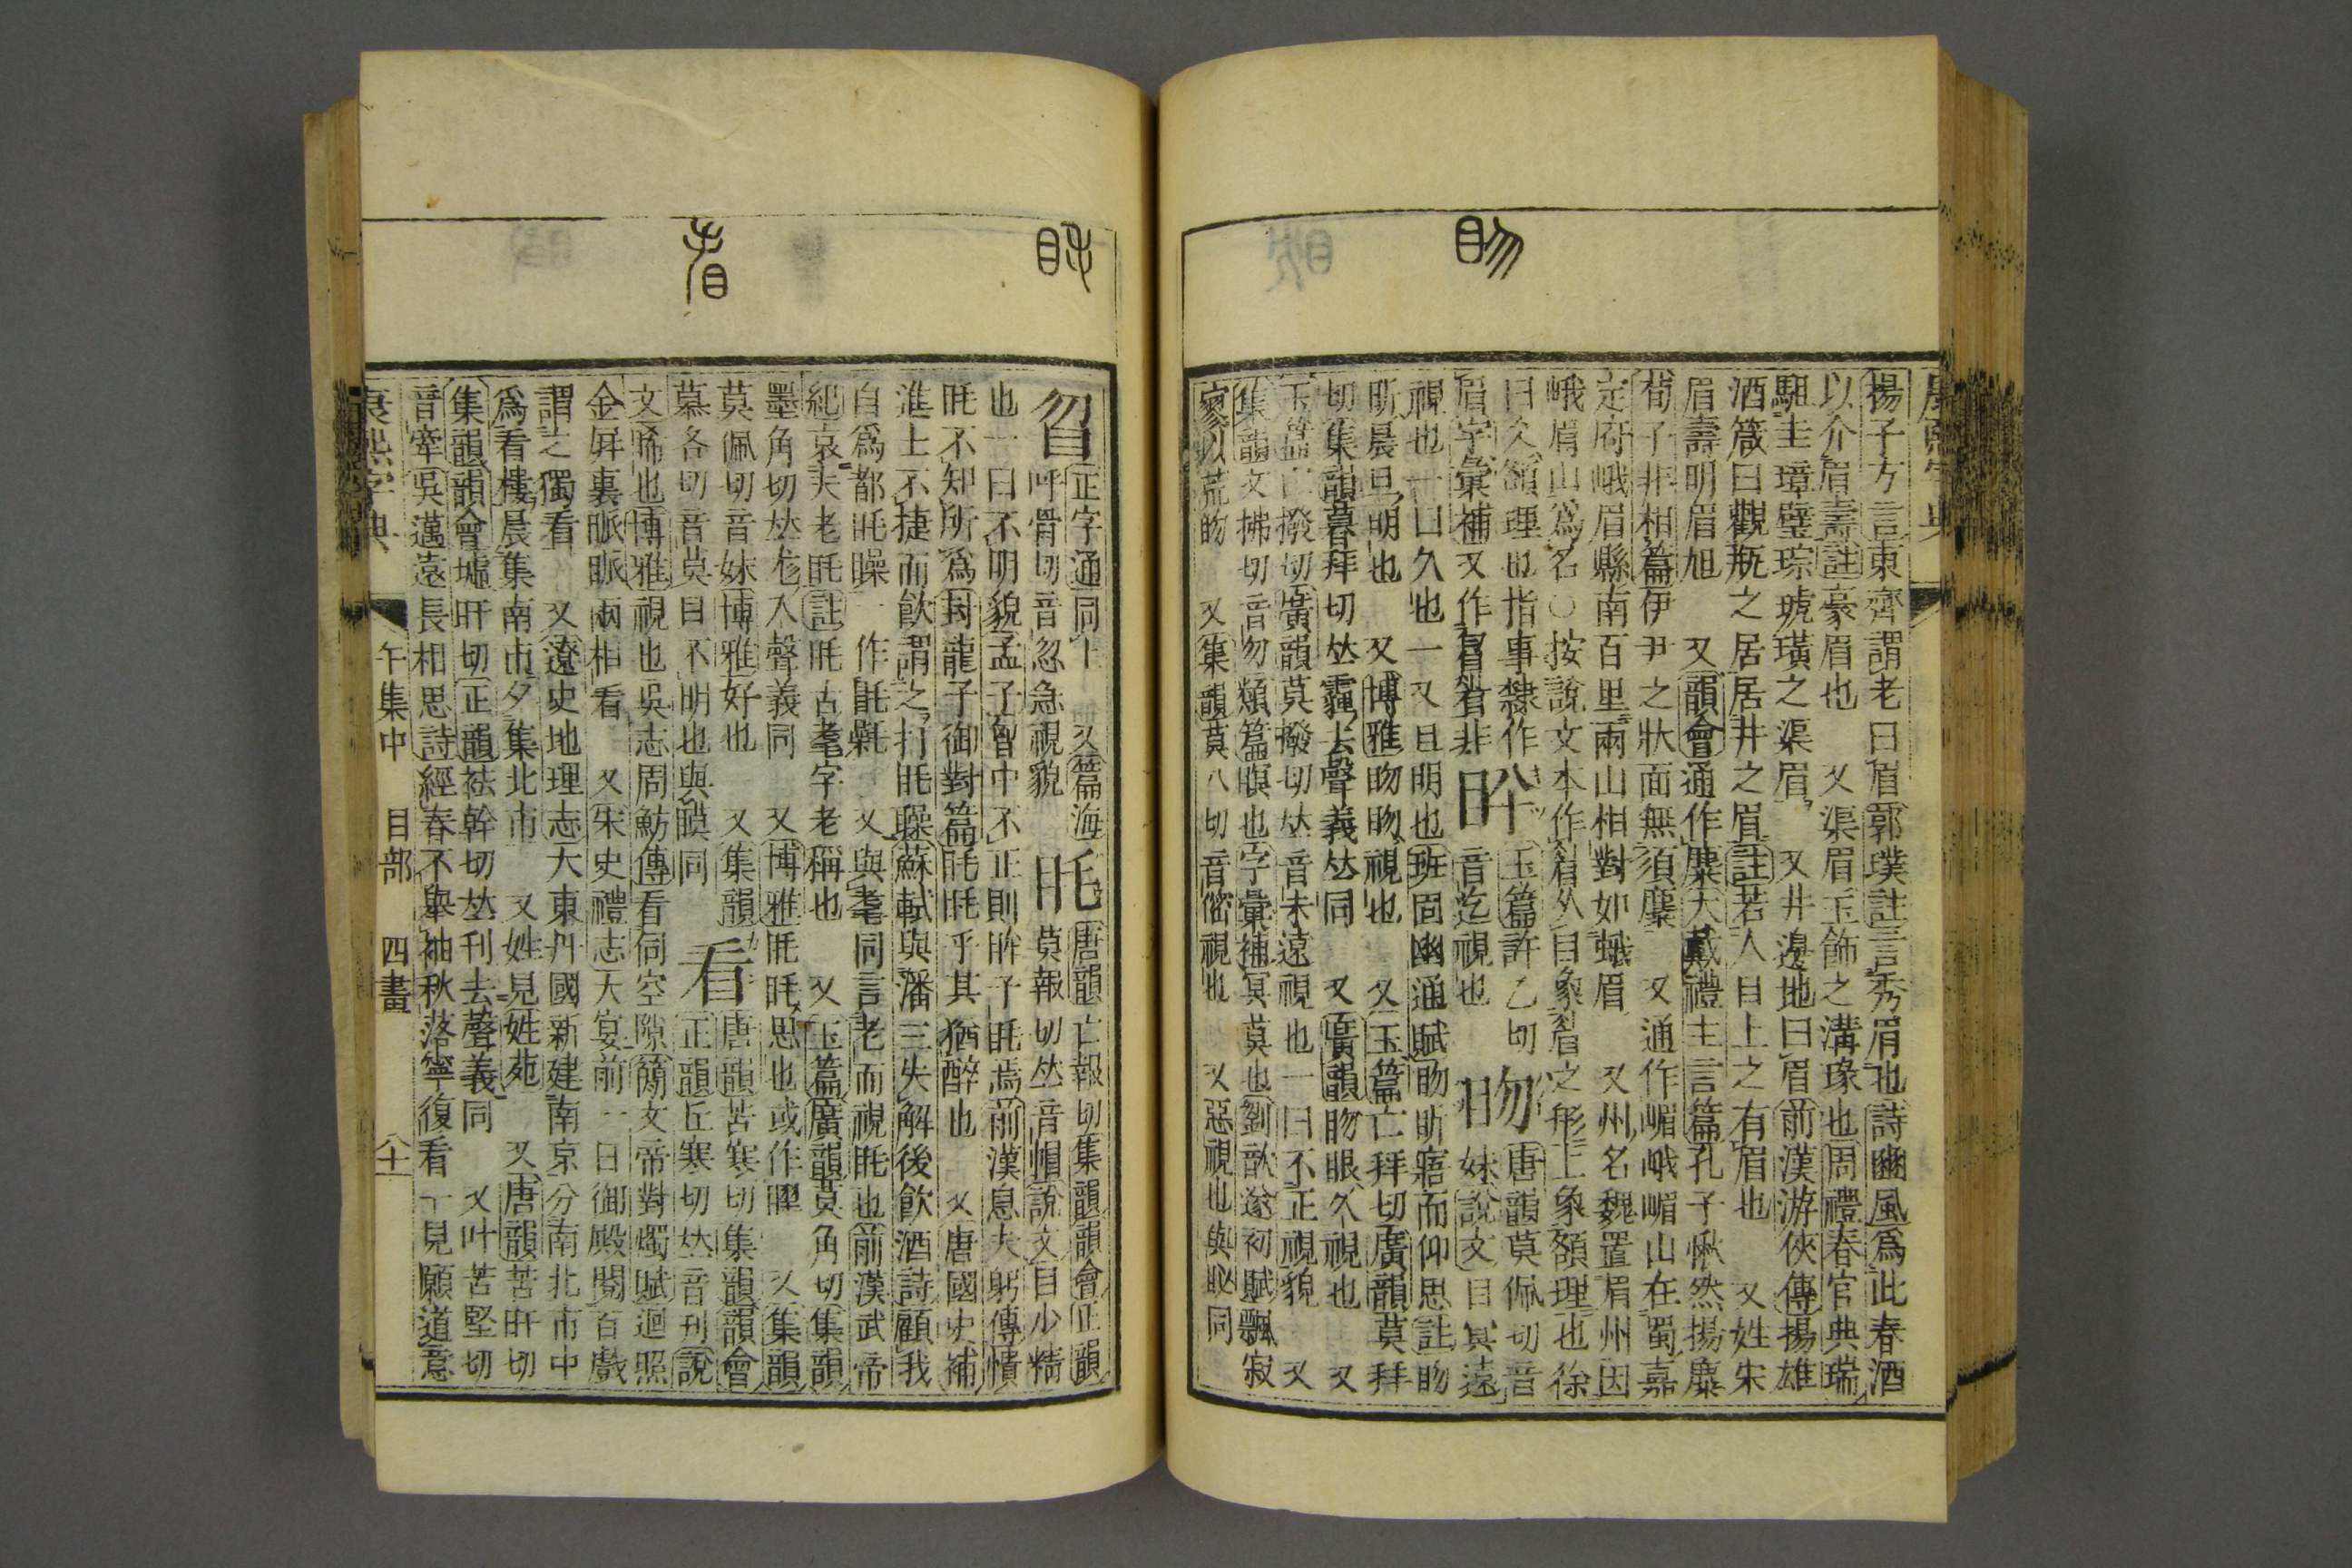 揚子方言東齊謂老曰眉郭璞註言秀眉也詩豳風爲此春酒
以介眉壽註豪眉也 又渠眉玉飾之溝瑑也周禮春官典瑞
駔圭璋璧琮琥璜之渠眉 又井邊地曰眉前漢游俠傳揚雄
酒箴曰觀瓶之居居井之眉註若人目上之有眉也 又姓朱
眉壽明眉旭 又韻會通作麋大戴禮主言篇孔子愀然揚麋
荀子非相篇伊尹之狀面無須麋 又通作嵋峨嵋山在蜀嘉
定府峨眉縣南百里兩山相對如蛾眉 又州名魏置眉州因
峨眉山爲名〇按說文本作𥇡从目象𥇡之形上象頟理也徐
曰久頟理也指事隸作
眉字彙補又作睂𥄕非
盻 玉篇許乙切
音迄視也
眆 唐韻莫佩切音
妹說文目冥遠
視也一曰久也一又旦明也班固幽通賦昒昕寤而仰思註昒
昕晨旦明也 又博雅昒昒視也 又玉篇亡拜切廣韻莫拜
切集韻暮拜切𠀤霾去聲義𠀤同 又廣韻昒眼久視也 又
玉篇亡撥切廣韻莫撥切𠀤音末遠視也一曰不正視貌 又
集韻文拂切音勿類篇瞑也字彙補冥莫也劉歆遂初賦飄寂
寥以荒昒 又集韻莫八切音傛視也 又惡視也與眍同
午集中 目部 四畫
曶 正字通同上 又篇海
呼骨切音忽急視貌
眊 唐韻亡報切集韻韻會正韻
莫報切𠀤音帽說文目少精
也一曰不明貌孟子胷中不正則眸子眊焉前漢息夫躬傳憒
眊不知所爲封龍子御對篇眊眊乎其猶醉也 又唐國史補
進士不捷而飮謂之打眊矂蘇軾與潘三失解後飮酒詩顧我
自爲都眊矂一作毷氉 又與耄同言老而視眊也前漢武帝
紀哀夫老眊註眊古耄字老稱也 又玉篇廣韻莫角切集韻
墨角切𠀤尨入聲義同 又博雅眊眊思也或作毣 又集韻
莫佩切音妹博雅好也 又集韻
慕各切音莫目不明也與瞙同
看 唐韻苦寒切集韻韻會
正韻丘寒切𠀤音刊說
文睎也博雅視也吳志周魴傳看伺空隙簡文帝對燭賦迴照
金屛裏脈脈兩相看 又宋史禮志大宴前一日御殿閱百戲
謂之獨看 又遼史地理志大東丹國新建南京分南北市中
爲看樓晨集南市夕集北市 又姓見姓苑 又唐韻苦旰切
集韻韻會墟旰切正韻袪幹切𠀤刊去聲義同 又叶苦堅切
音牽吳邁遠長相思詩經春不舉袖秋落寧復看一見願道意
康熙字典 午集中 目部 四畫 八十